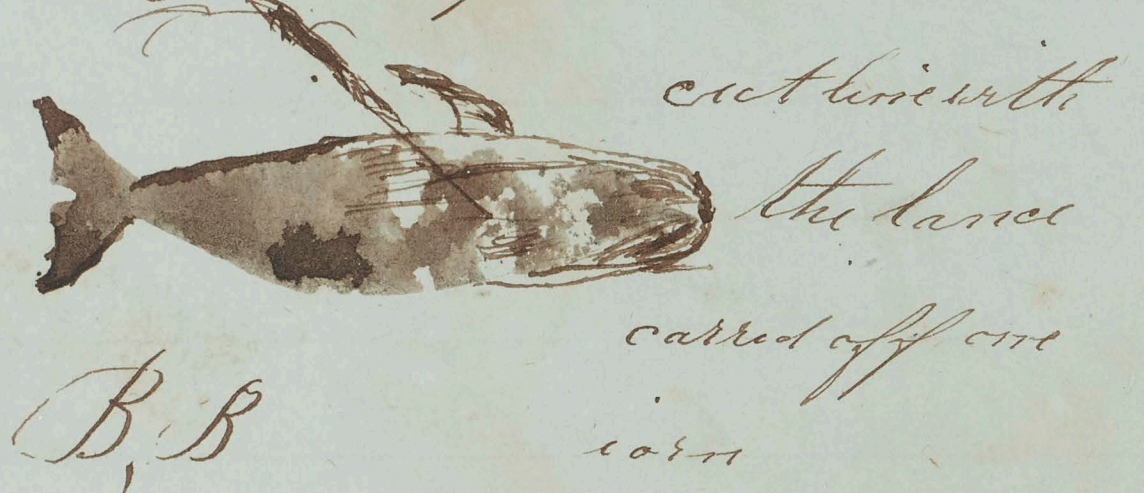 cut line with
the lance
carred off one
B, B
iorn